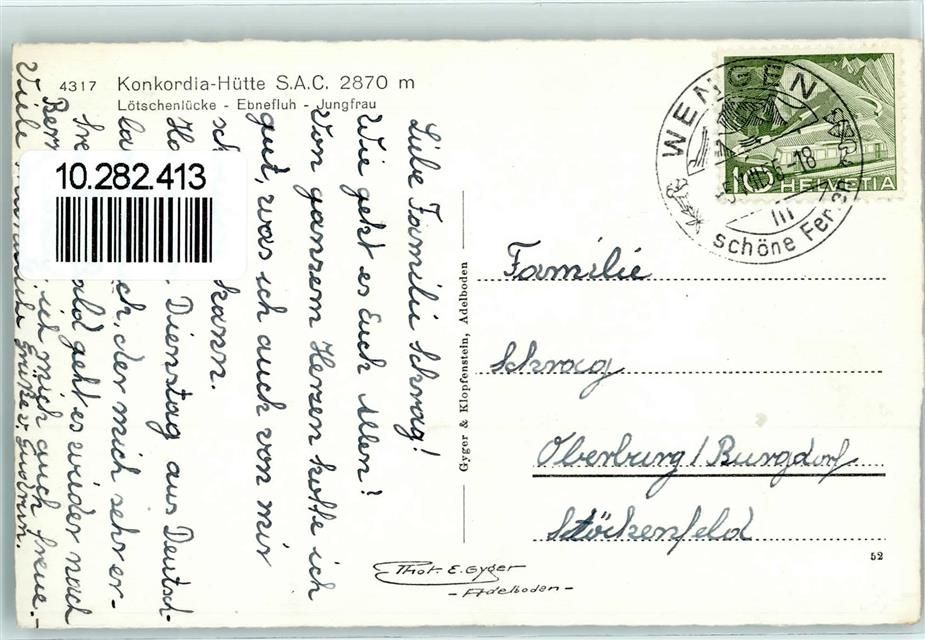 4317 Konkordia-Hütte S.A.C. 2870 m
Lötschenlücke - Ebnefluh - Jungfrau
10.282.413
Liebe Familie Schrag!
Wie geht es Euch Allen?
Von ganzem Herzen hoffe ich
gut, was ich auch von mir
kann.
Dienstag aus Deutsch-
ich, der mich sehr er-
bald geht es wieder nach
Bern, ich mich auch freue.-
Viele Grüsse v.
Gyger & Klopfenstein, Adelboden
WENGEN
18
schöne Ferien
10 HELVETIA
Familie
Schrag
Oberburg/Burgdorf
Stöckenfeld
52
Phot. E. Gyger
- Adelboden -